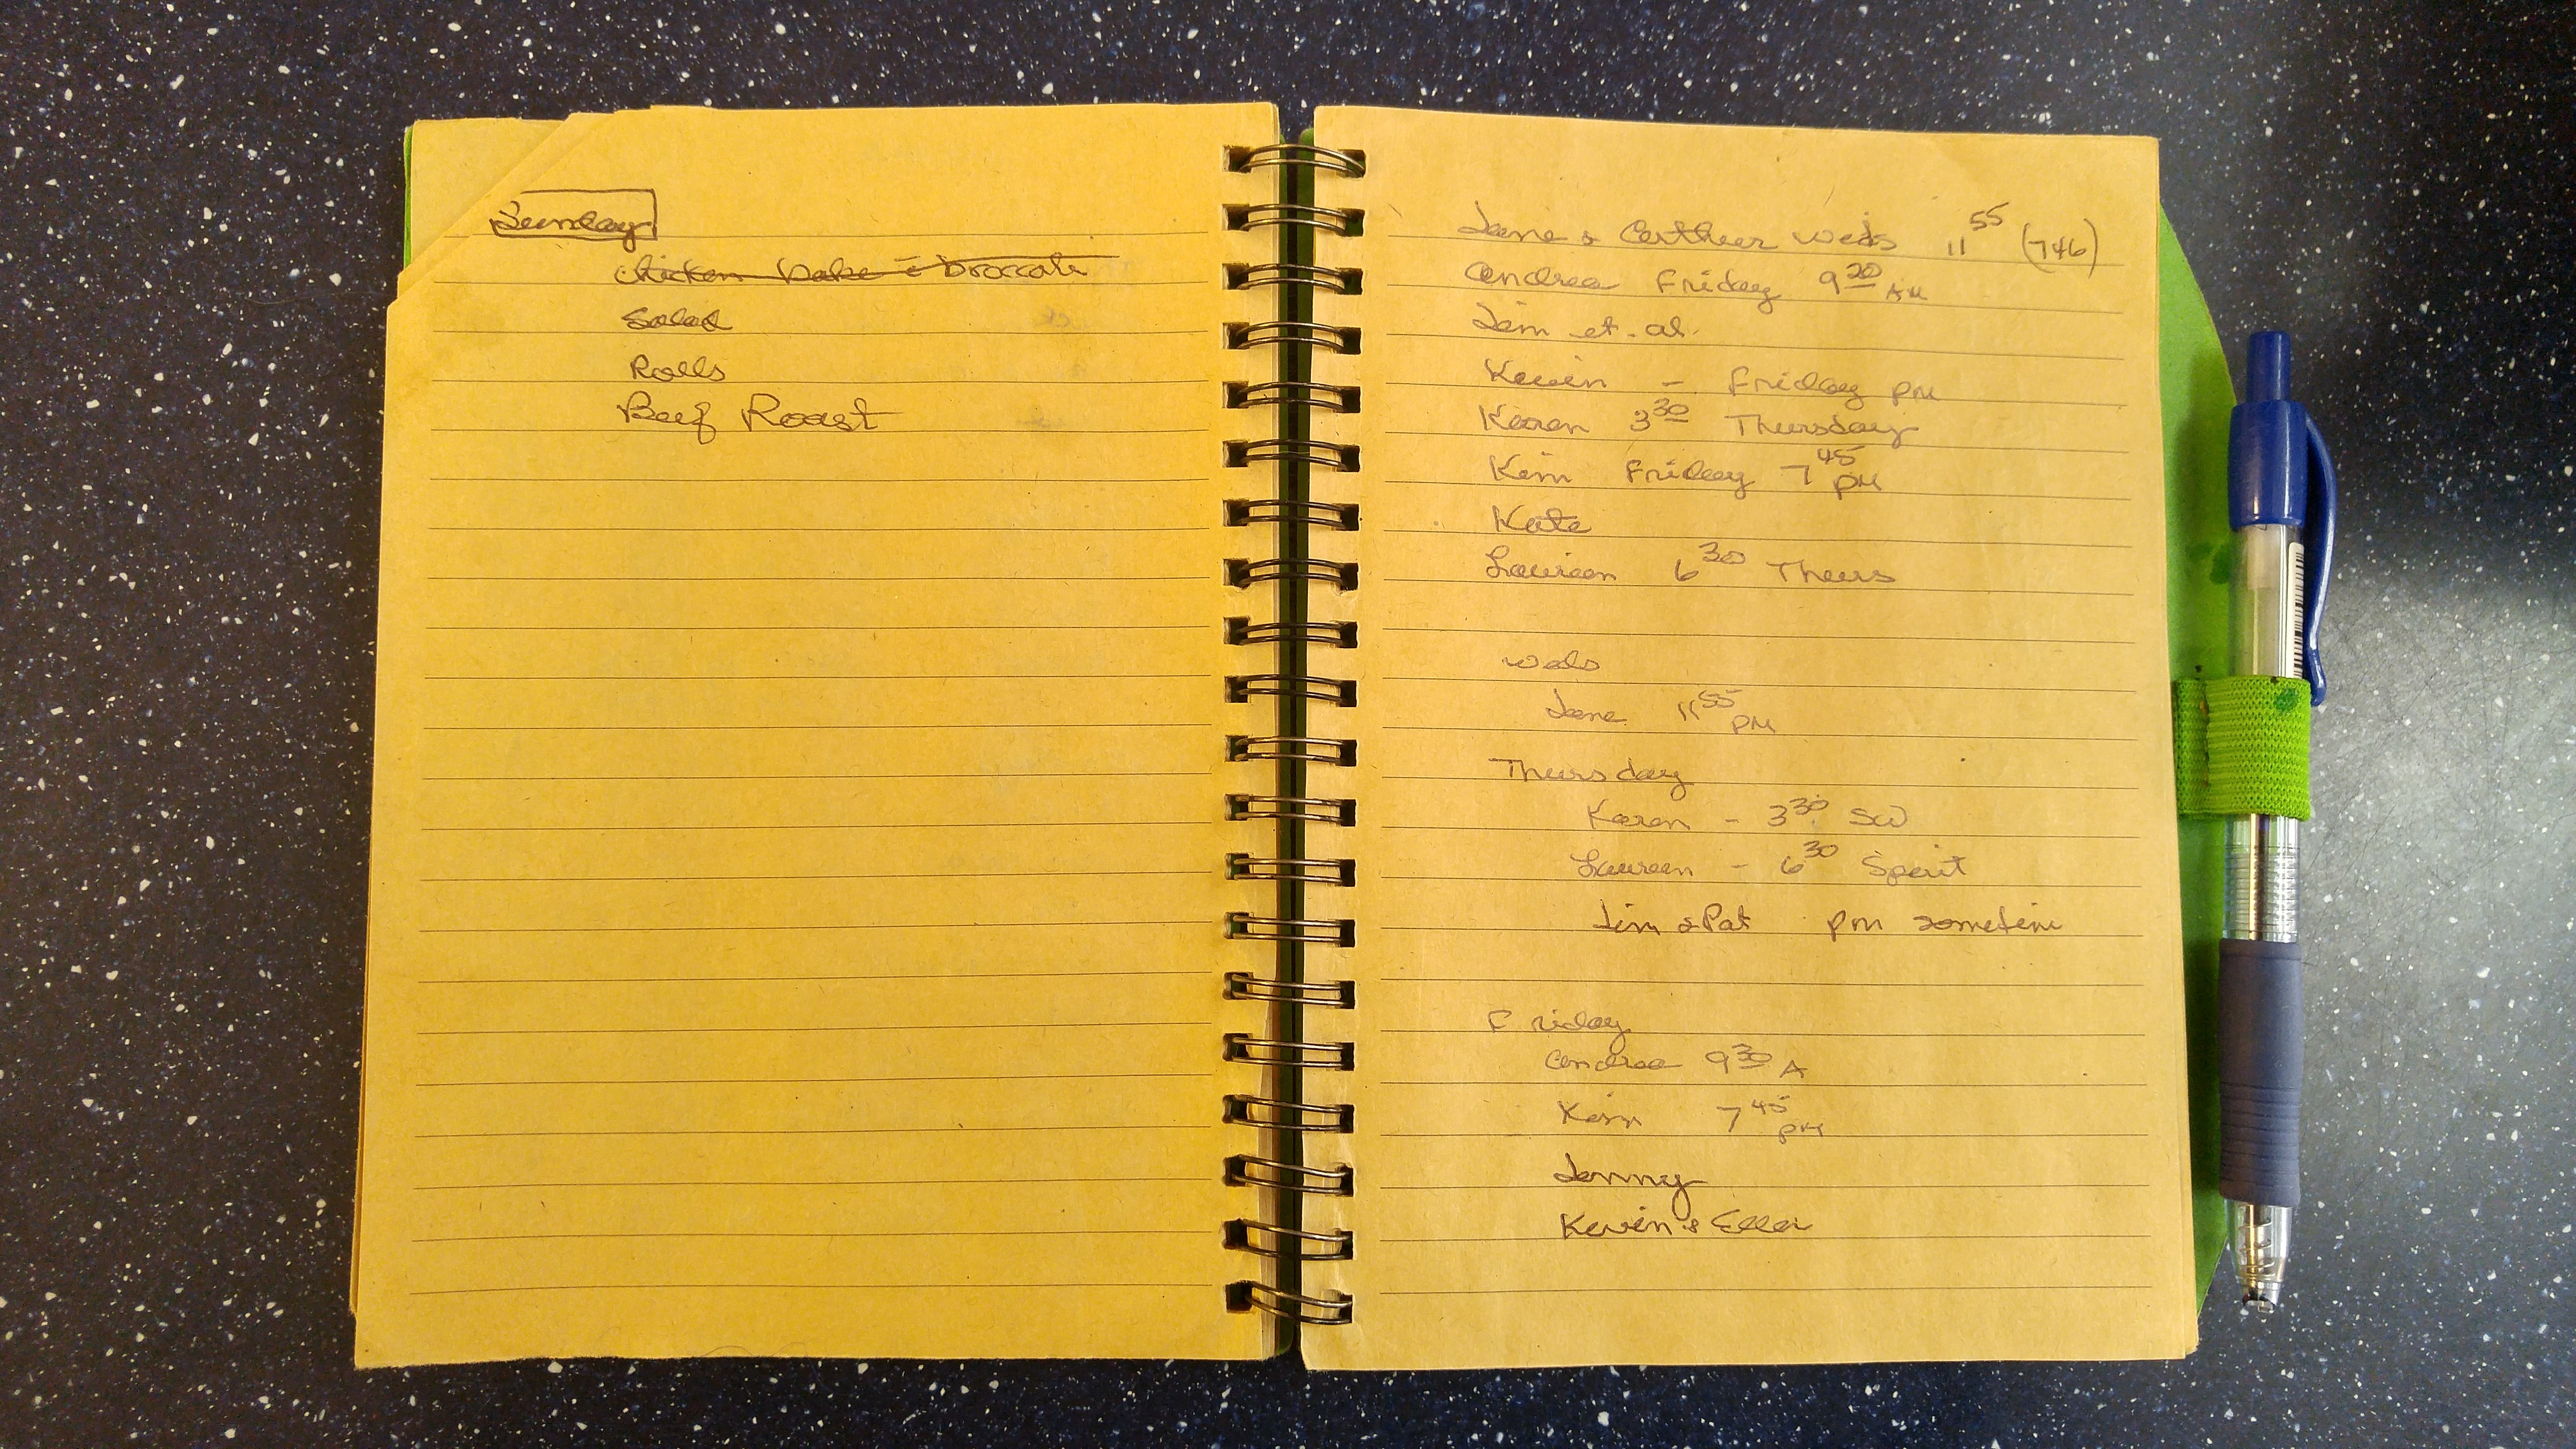 Sunday
Chicken bake c̄ broccoli
Salad
Rolls
Beef Roast
Jane & Arthur Weds 11 55 (746)
Andrea Friday 9 20 AM
Jim et. al.
Kevin - Friday PM
Karen 3 30 Thursday
Kim Friday 7 45 PM
Kate
Laureen 6 30 Thurs
Weds
Jane 11 55 PM
Thursday
Karen - 3 30 SW
Laureen - 6 30 Spirit
Jim & Pat pm sometime
Friday
Andrea 9 30 A
Kim 7 45 PM
Jenny
Kevin &